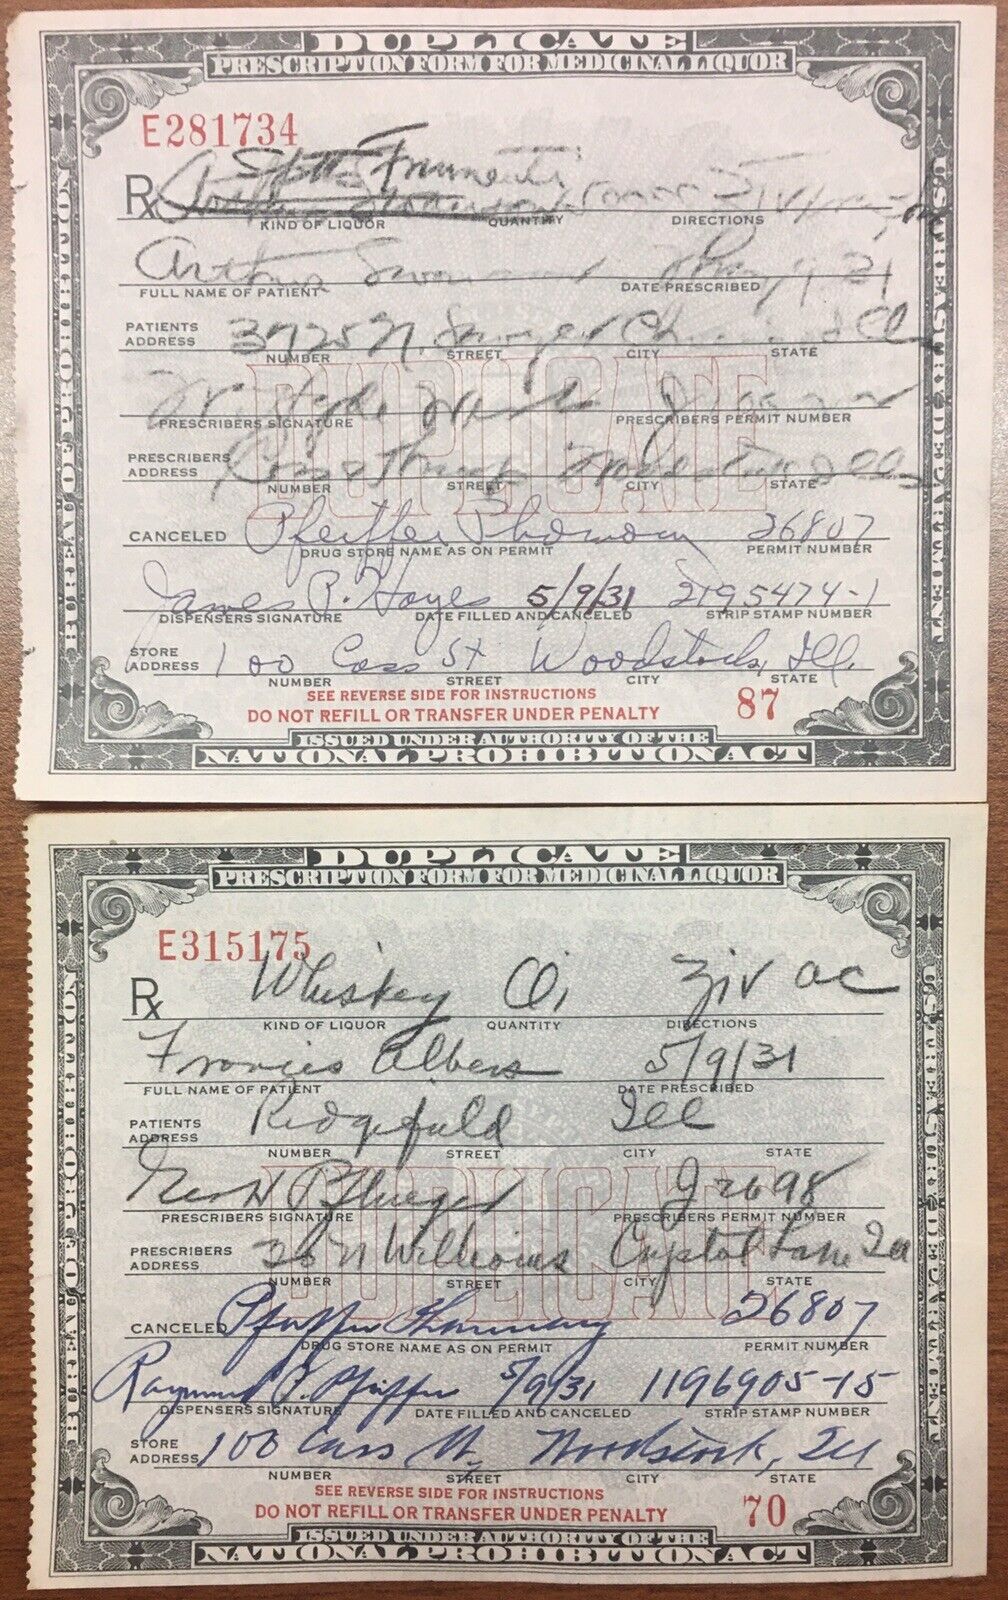 DUPLICATE
PRESCRIPTION FORM FOR MEDICINAL LIQUOR
BUREAU OF PROHIBITION
U.S. TREASURY DEPARTMENT
E281734
Rx Frumenti
KIND OF LIQUOR QUANTITY DIRECTIONS
Arthur Swanson May 9, 31
FULL NAME OF PATIENT DATE PRESCRIBED
PATIENTS ADDRESS 3725 N. Ill
NUMBER STREET CITY STATE
DUPLICATE
PRESCRIBERS SIGNATURE PRESCRIBERS PERMIT NUMBER
PRESCRIBERS ADDRESS Woodstock Ill
NUMBER STREET CITY STATE
CANCELED Pfeiffer Pharmacy 26807
DRUG STORE NAME AS ON PERMIT PERMIT NUMBER
James P. Hayes 5/9/31 2195474-1
DISPENSERS SIGNATURE DATE FILLED AND CANCELED STRIP STAMP NUMBER
STORE ADDRESS 100 Cass St Woodstock, Ill.
NUMBER STREET CITY STATE
SEE REVERSE SIDE FOR INSTRUCTIONS
DO NOT REFILL OR TRANSFER UNDER PENALTY 87
ISSUED UNDER AUTHORITY OF THE
NATIONAL PROHIBITION ACT
DUPLICATE
PRESCRIPTION FORM FOR MEDICINAL LIQUOR
BUREAU OF PROHIBITION
U.S. TREASURY DEPARTMENT
E315175
Rx Whiskey Oi ac
KIND OF LIQUOR QUANTITY DIRECTIONS
Francis Albers 5/9/31
FULL NAME OF PATIENT DATE PRESCRIBED
PATIENTS ADDRESS Ridgefield Ill
NUMBER STREET CITY STATE
DUPLICATE
Geo H Pflueger J2698
PRESCRIBERS SIGNATURE PRESCRIBERS PERMIT NUMBER
PRESCRIBERS ADDRESS 36 N Williams Crystal Lake Ill
NUMBER STREET CITY STATE
CANCELED Pfeiffer Pharmacy 26807
DRUG STORE NAME AS ON PERMIT PERMIT NUMBER
Raymond J. Pfeiffer 5/9/31 1196905-15
DISPENSERS SIGNATURE DATE FILLED AND CANCELED STRIP STAMP NUMBER
STORE ADDRESS 100 Cass St. Woodstock, Ill
NUMBER STREET CITY STATE
SEE REVERSE SIDE FOR INSTRUCTIONS
DO NOT REFILL OR TRANSFER UNDER PENALTY 70
ISSUED UNDER AUTHORITY OF THE
NATIONAL PROHIBITION ACT